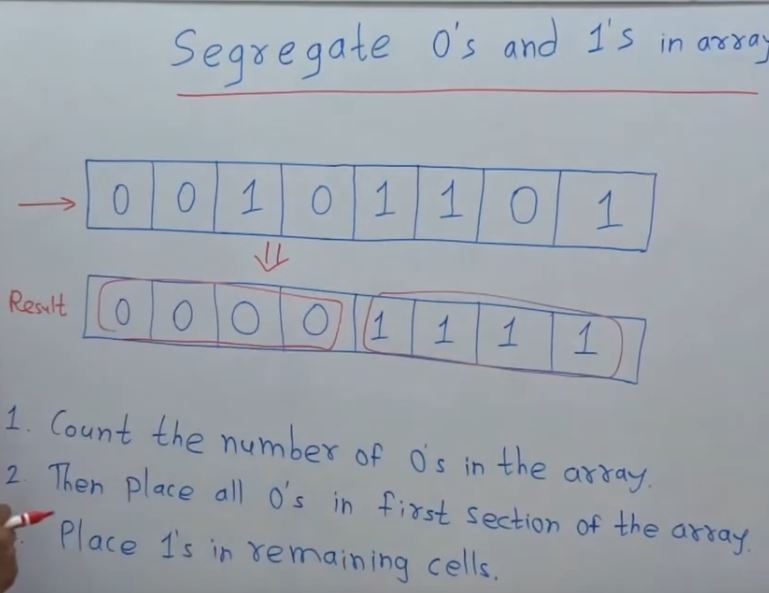 Segregate 0's and 1's in array
0 0 1 0 1 1 0 1
Result 0 0 0 0 1 1 1 1
1. Count the number of 0's in the array.
2. Then place all 0's in first section of the array.
Place 1's in remaining cells.